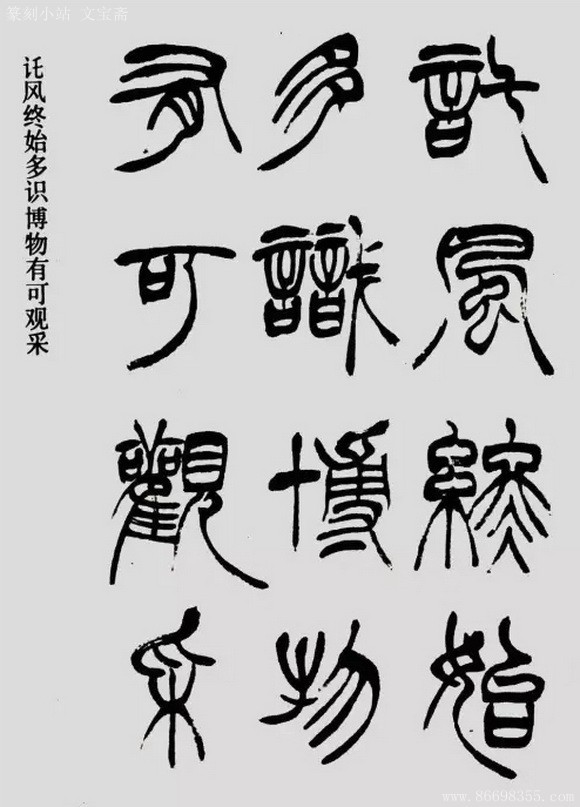 篆刻小站 文宝斋
託風終始
多識博物
有可觀采
讬风终始多识博物有可观采
www.86698355.com